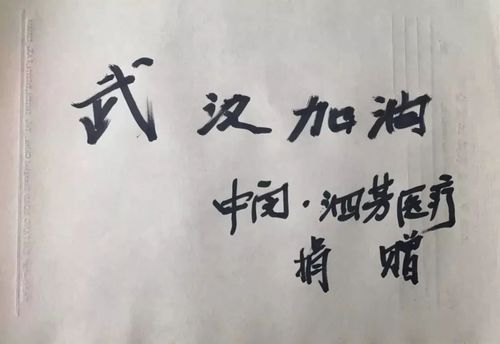 武汉加油
中闵·泗芳医疗
捐赠